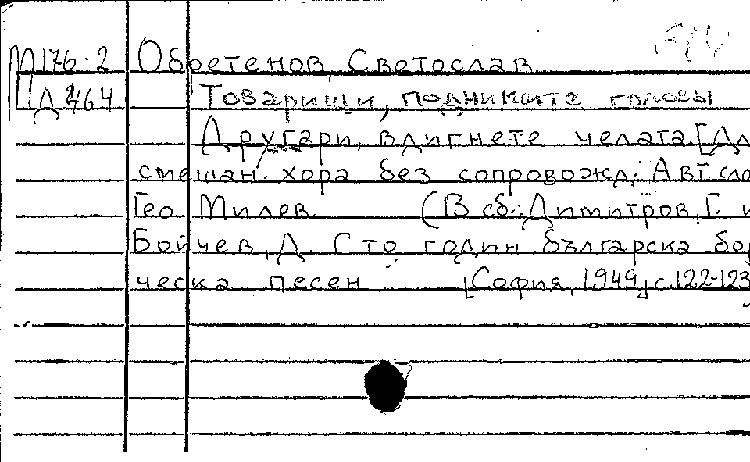 М176.2 Обретенов, Светослав
Д 464 Товарищи, поднимите головы
Другари, вдигнете челата. [Дл
смешан. хора без сопровожд. Авт. сло
Гео Милев. (В сб.: Димитров, Г. и
Бойчев, Д. Сто годин българска бор
ческа песен [София, 1949] с. 122-123